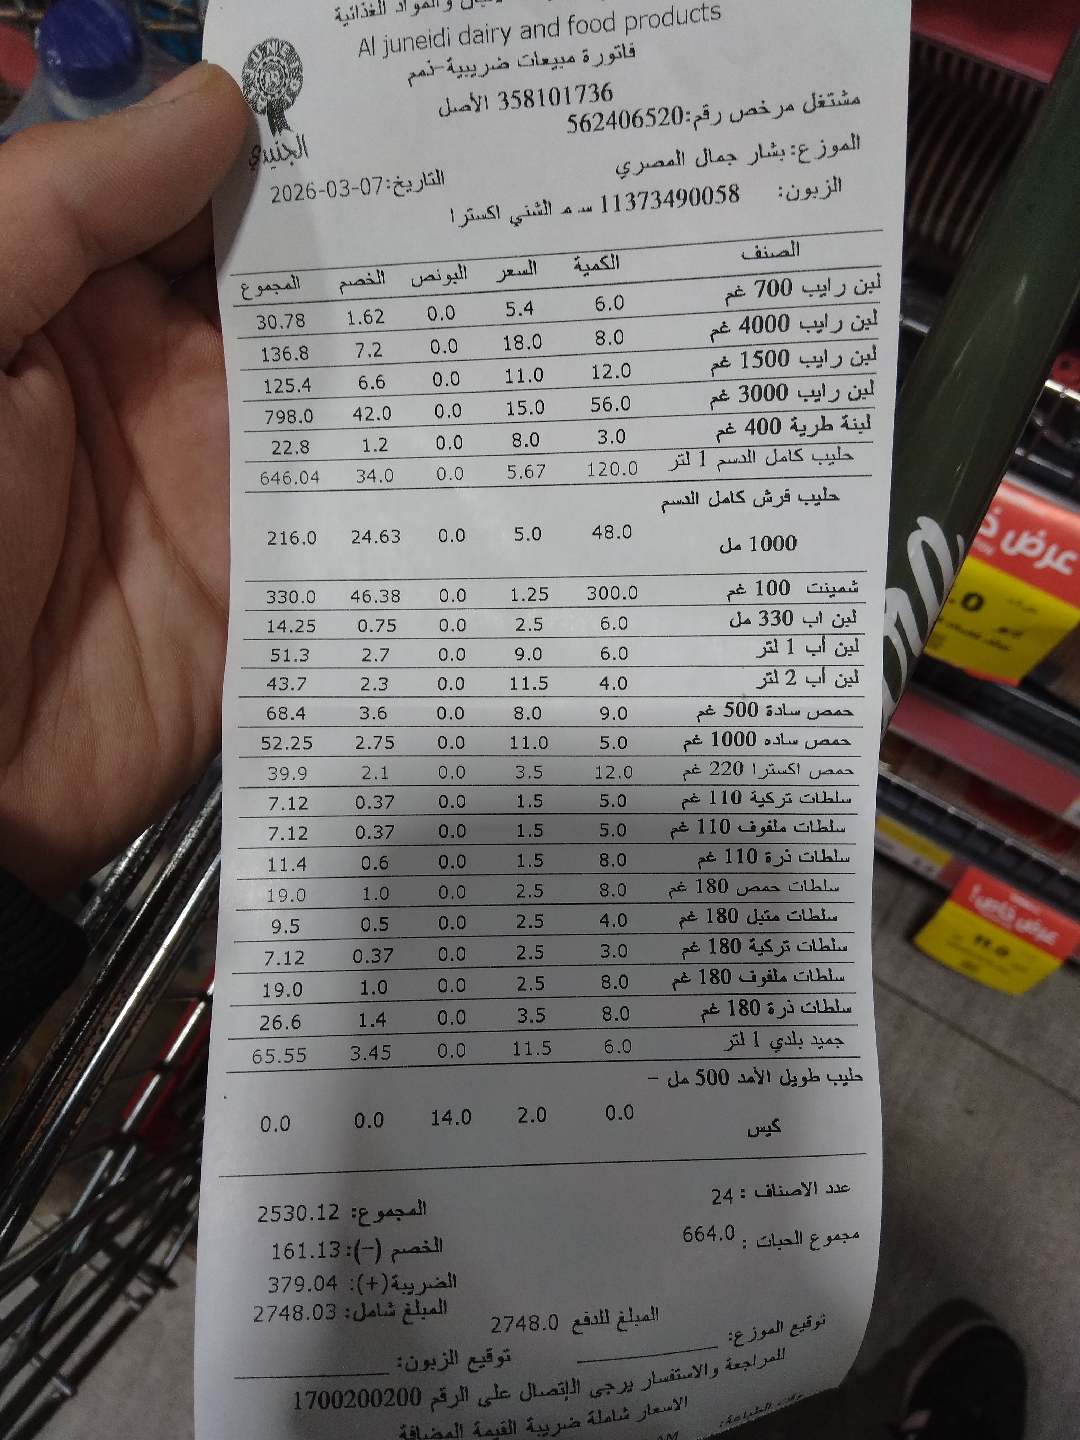 والمواد الغذائية
Al juneidi dairy and food products
فاتورة مبيعات ضريبية-ذمم
358101736 الأصل
مشتغل مرخص رقم:562406520
الجنيدي
الموزع: بشار جمال المصري
التاريخ:2026-03-07
الزبون: 11373490058 س م الشني اكسترا
الصنف الكمية السعر البونص الخصم المجموع
لبن رايب 700 غم 6.0 5.4 0.0 1.62 30.78
لبن رايب 4000 غم 8.0 18.0 0.0 7.2 136.8
لبن رايب 1500 غم 12.0 11.0 0.0 6.6 125.4
لبن رايب 3000 غم 56.0 15.0 0.0 42.0 798.0
لبنة طرية 400 غم 3.0 8.0 0.0 1.2 22.8
حليب كامل الدسم 1 لتر 120.0 5.67 0.0 34.0 646.04
حليب فرش كامل الدسم
1000 مل 48.0 5.0 0.0 24.63 216.0
شمينت 100 غم 300.0 1.25 0.0 46.38 330.0
لبن اب 330 مل 6.0 2.5 0.0 0.75 14.25
لبن أب 1 لتر 6.0 9.0 0.0 2.7 51.3
لبن أب 2 لتر 4.0 11.5 0.0 2.3 43.7
حمص سادة 500 غم 9.0 8.0 0.0 3.6 68.4
حمص ساده 1000 غم 5.0 11.0 0.0 2.75 52.25
حمص اكسترا 220 غم 12.0 3.5 0.0 2.1 39.9
سلطات تركية 110 غم 5.0 1.5 0.0 0.37 7.12
سلطات ملفوف 110 غم 5.0 1.5 0.0 0.37 7.12
سلطات ذرة 110 غم 8.0 1.5 0.0 0.6 11.4
سلطات حمص 180 غم 8.0 2.5 0.0 1.0 19.0
سلطات متبل 180 غم 4.0 2.5 0.0 0.5 9.5
سلطات تركية 180 غم 3.0 2.5 0.0 0.37 7.12
سلطات ملفوف 180 غم 8.0 2.5 0.0 1.0 19.0
سلطات ذرة 180 غم 8.0 3.5 0.0 1.4 26.6
جميد بلدي 1 لتر 6.0 11.5 0.0 3.45 65.55
حليب طويل الأمد 500 مل -
كيس 0.0 2.0 14.0 0.0 0.0
عدد الاصناف : 24
المجموع: 2530.12
مجموع الحبات : 664.0
الخصم (-): 161.13
الضريبة(+): 379.04
المبلغ شامل: 2748.03
المبلغ للدفع 2748.0
توقيع الموزع:
توقيع الزبون:
للمراجعة والاستفسار يرجى الإتصال على الرقم 1700200200
الاسعار شاملة ضريبة القيمة المضافة
عرض
عرض خاص!